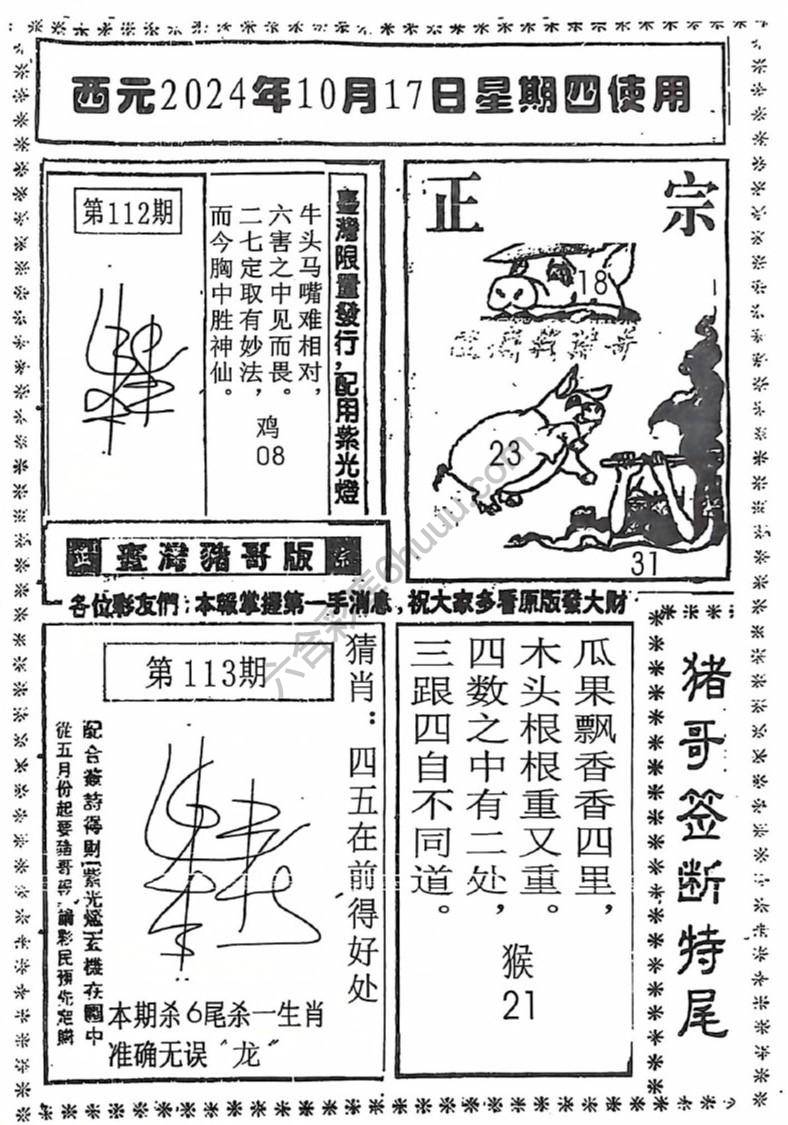 西元2024年10月17日星期四使用
第112期
牛头马嘴难相对，
六害之中见而畏。
二七定取有妙法，
而今胸中胜神仙。
鸡
08
臺灣限量發行，配用紫光燈
正 宗
18
23
31
正 臺灣豬哥版 宗
各位彩友們：本報掌握第一手消息，祝大家多看原版發大財
第113期
猜肖：四五在前得好处
從五月份起要豬哥報
請彩民預先定購
本期杀6尾杀一生肖
准确无误“龙”
瓜果飘香香四里，
木头根根重又重。
四数之中有二处，
三跟四自不同道。
猴
21
猪哥签断特尾
六合彩库6huuu.com